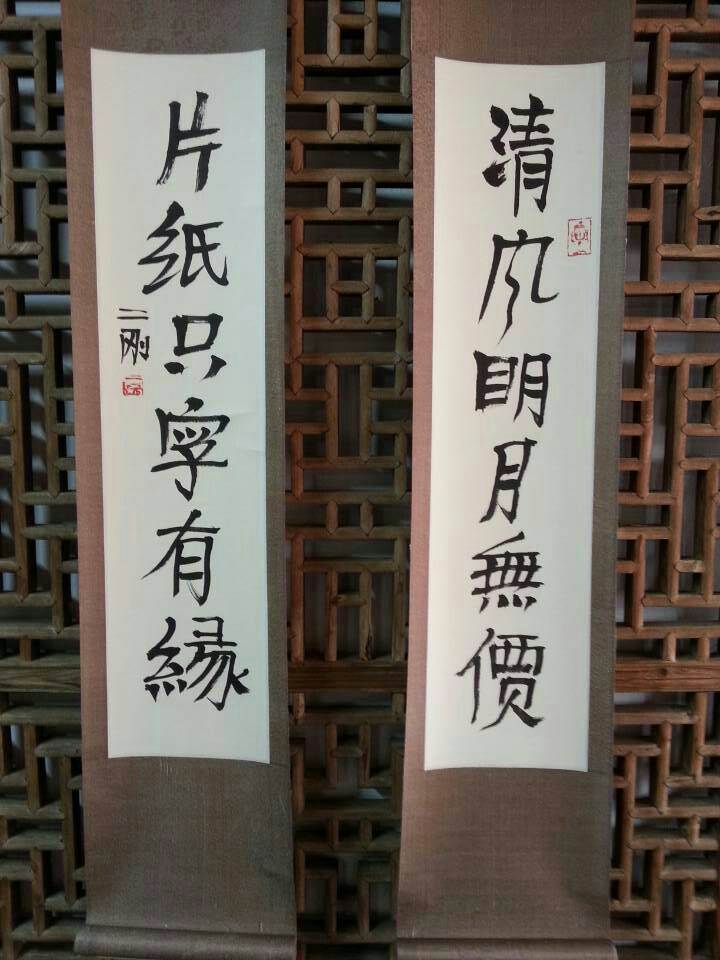 清风明月無價
片纸只字有緣
二刚